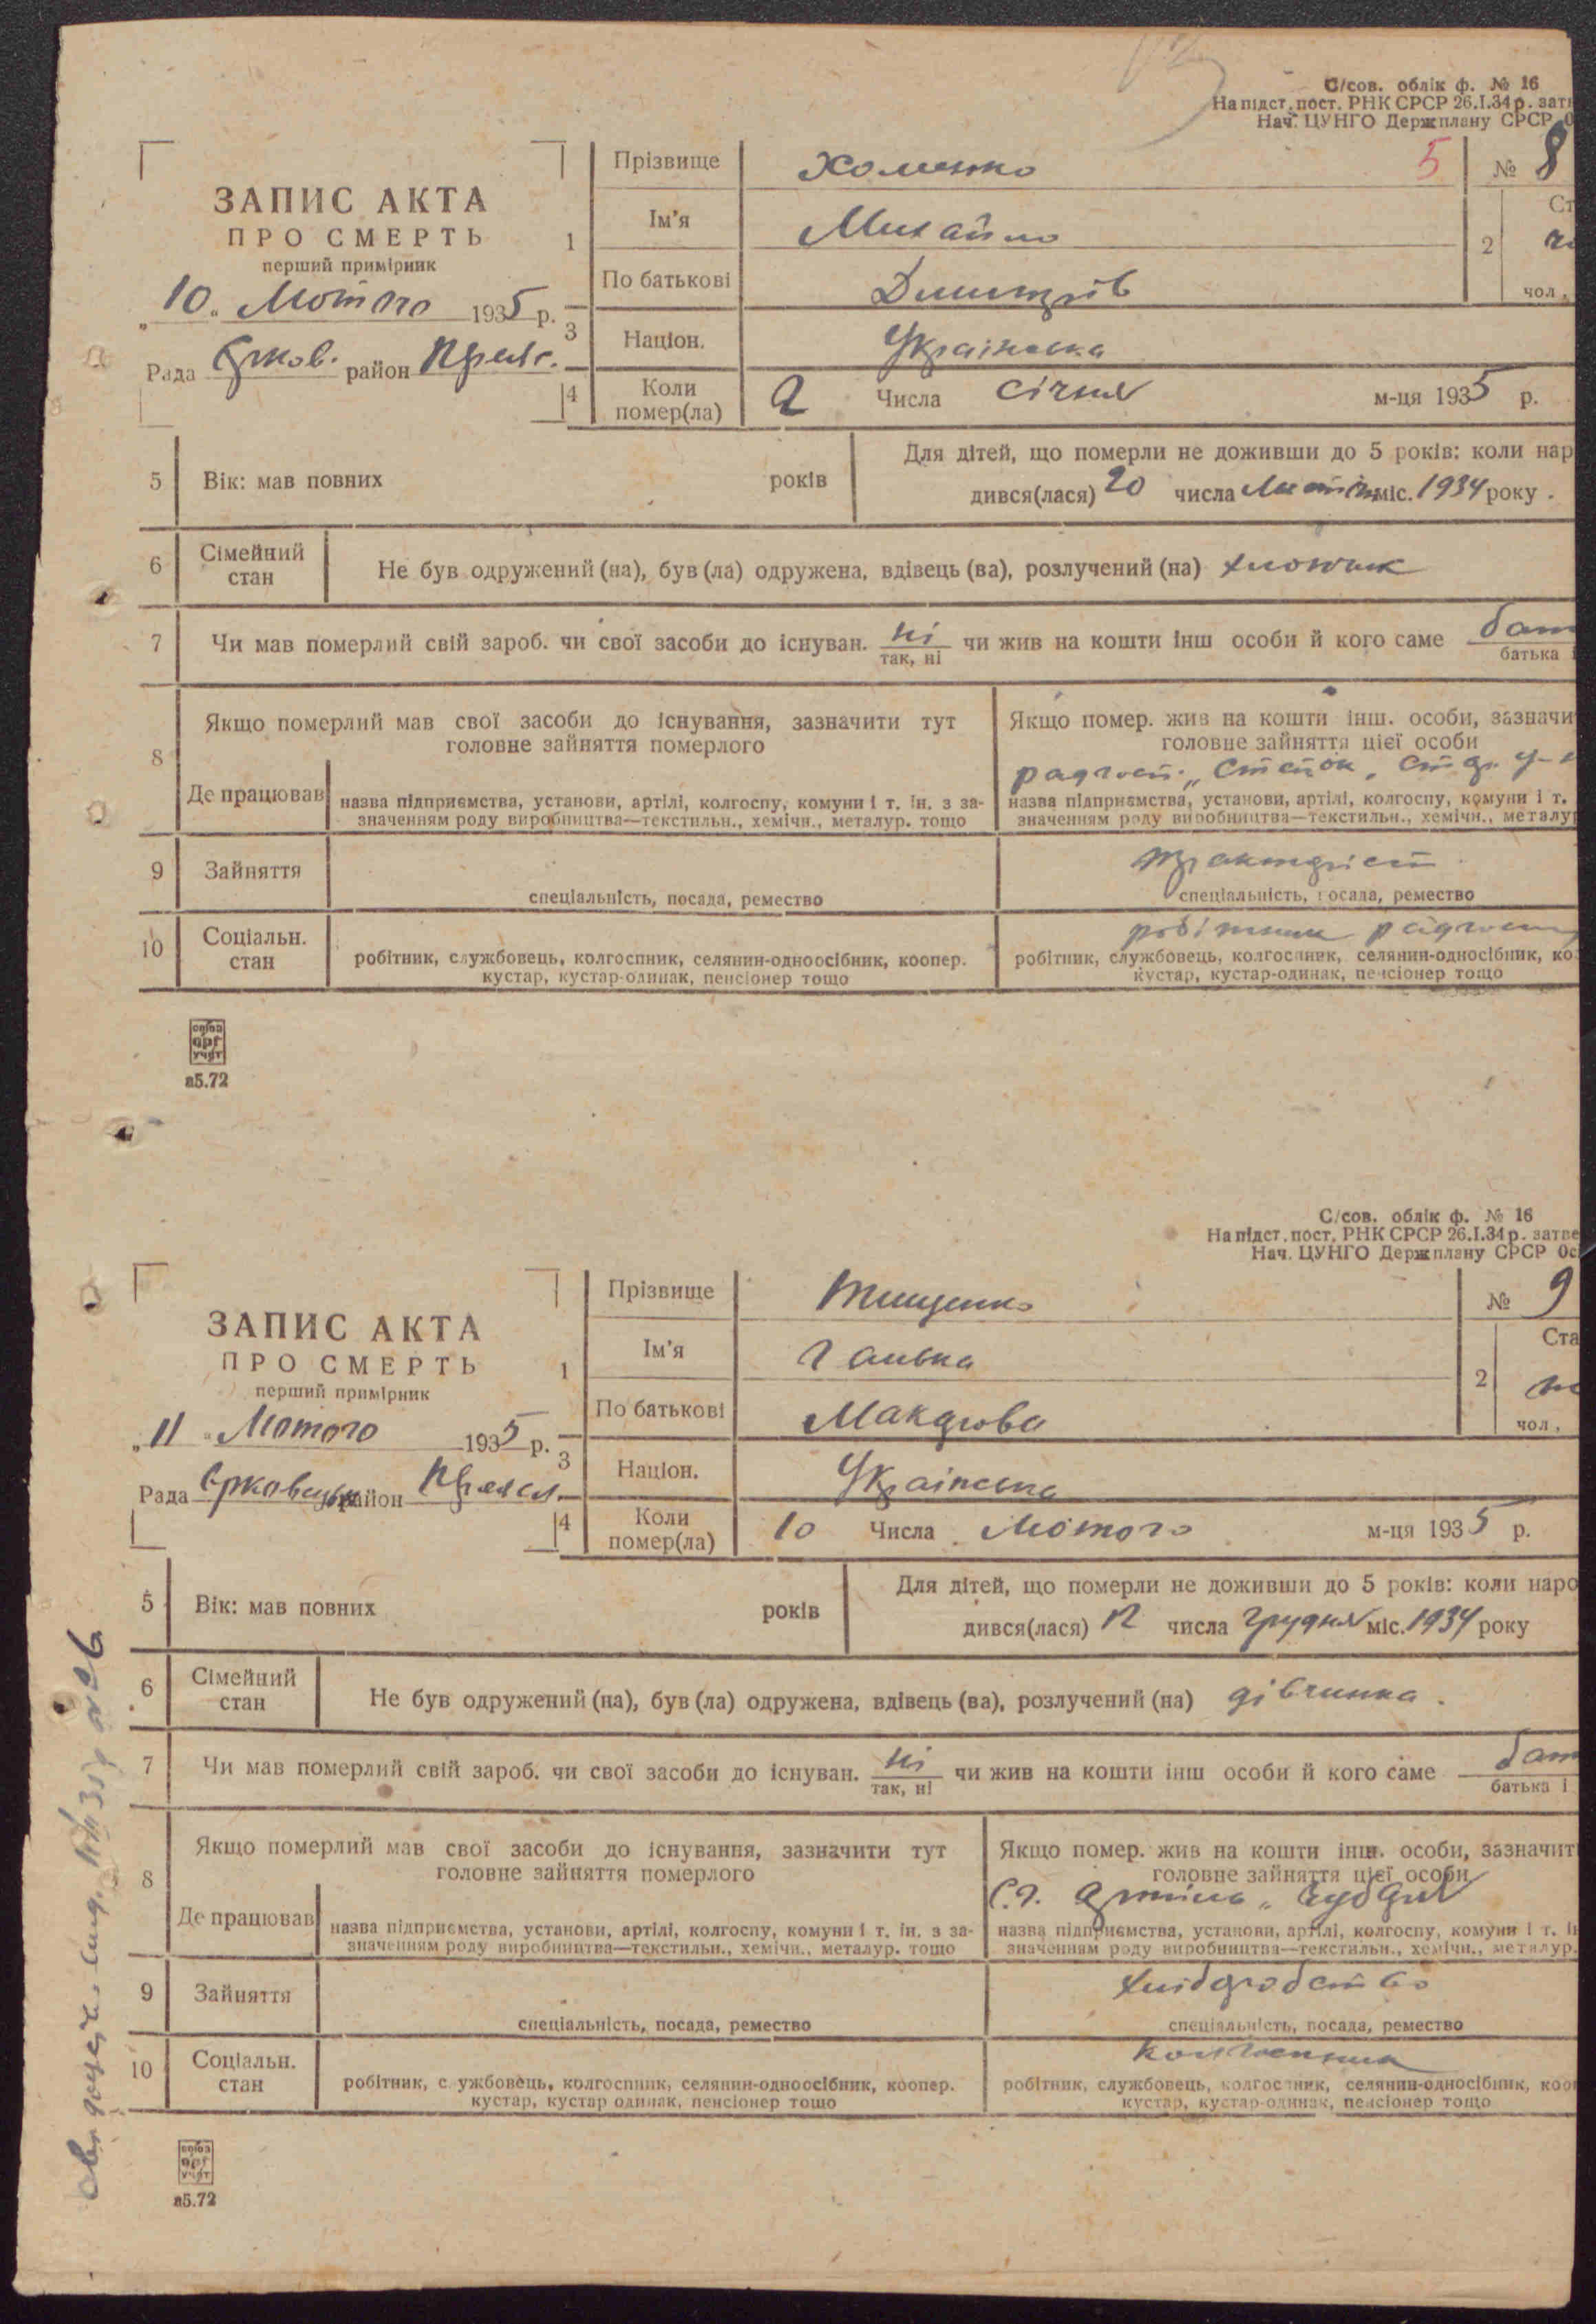 С/сов. облік ф. № 16
На підст. пост. РНК СРСР 26.I.34 р. зат
Нач. ЦУНГО Держплану СРСР О
ЗАПИС АКТА
ПРО СМЕРТЬ
перший примірник
„10„ Лютого 1935 р.
Рада район
1 Прізвище Хоменко 5 № 8
Ім'я Михайло 2 Ст
По батькові чол.
3 Націон. Українська
4 Коли помер(ла) 2 Числа січня м-ця 1935 р.
5 Вік: мав повних років
Для дітей, що померли не доживши до 5 років: коли нар
дився(лася) 20 числа міс. 1934 року.
6 Сімейний стан Не був одружений (на), був (ла) одружена, вдівець (ва), розлучений (на) хлопчик
7 Чи мав померлий свій зароб. чи свої засоби до існуван. ні чи жив на кошти інш особи й кого саме бат
так, ні батька і
8 Якщо померлий мав свої засоби до існування, зазначити тут
головне зайняття померлого
Де працював
назва підприємства, установи, артілі, колгоспу, комуни і т. ін. з за-
значенням роду виробництва—текстильн., хемічн., металур. тощо
Якщо помер. жив на кошти інш. особи, зазначи
головне зайняття цієї особи
радгосп
назва підприємства, установи, артілі, колгоспу, комуни і т.
значенням роду виробництва—текстильн., хемічн., металур
9 Зайняття
спеціальність, посада, ремество
тракторіст
спеціальність, посада, ремество
10 Соціальн. стан
робітник, службовець, колгоспник, селянин-одноосібник, коопер.
кустар, кустар-одинак, пенсіонер тощо
робітник
робітник, службовець, колгоспник, селянин-односібник, ко
кустар, кустар-одинак, пенсіонер тощо
союз
орг
учет
а5.72
С/сов. облік ф. № 16
На підст. пост. РНК СРСР 26.I.34 р. затве
Нач. ЦУНГО Держплану СРСР Ос
ЗАПИС АКТА
ПРО СМЕРТЬ
перший примірник
„11„ Лютого 1935 р.
Рада Єрковецька район
1 Прізвище Тищенко № 9
Ім'я Галька 2 Ста
По батькові чол.
3 Націон. Українська
4 Коли помер(ла) 10 Числа Лютого м-ця 1935 р.
5 Вік: мав повних років
Для дітей, що померли не доживши до 5 років: коли наро
дився(лася) 12 числа грудня міс. 1934 року
6 Сімейний стан Не був одружений (на), був (ла) одружена, вдівець (ва), розлучений (на) дівчинка.
7 Чи мав померлий свій зароб. чи свої засоби до існуван. ні чи жив на кошти інш особи й кого саме бат
так, ні батька і
8 Якщо померлий мав свої засоби до існування, зазначити тут
головне зайняття померлого
Де працював
назва підприємства, установи, артілі, колгоспу, комуни і т. ін. з за-
значенням роду виробництва—текстильн., хемічн., металур. тощо
Якщо помер. жив на кошти інш. особи, зазначит
головне зайняття цієї особи
С.г. артіль
назва підприємства, установи, артілі, колгоспу, комуни і т. ін
значенням роду виробництва—текстильн., хемічн., металур.
9 Зайняття
спеціальність, посада, ремество
хліборобство
спеціальність, посада, ремество
10 Соціальн. стан
робітник, службовець, колгоспник, селянин-одноосібник, коопер.
кустар, кустар одинак, пенсіонер тощо
колгоспник
робітник, службовець, колгоспник, селянин-односібник, кооп
кустар, кустар-одинак, пенсіонер тощо
союз
орг
учет
а5.72